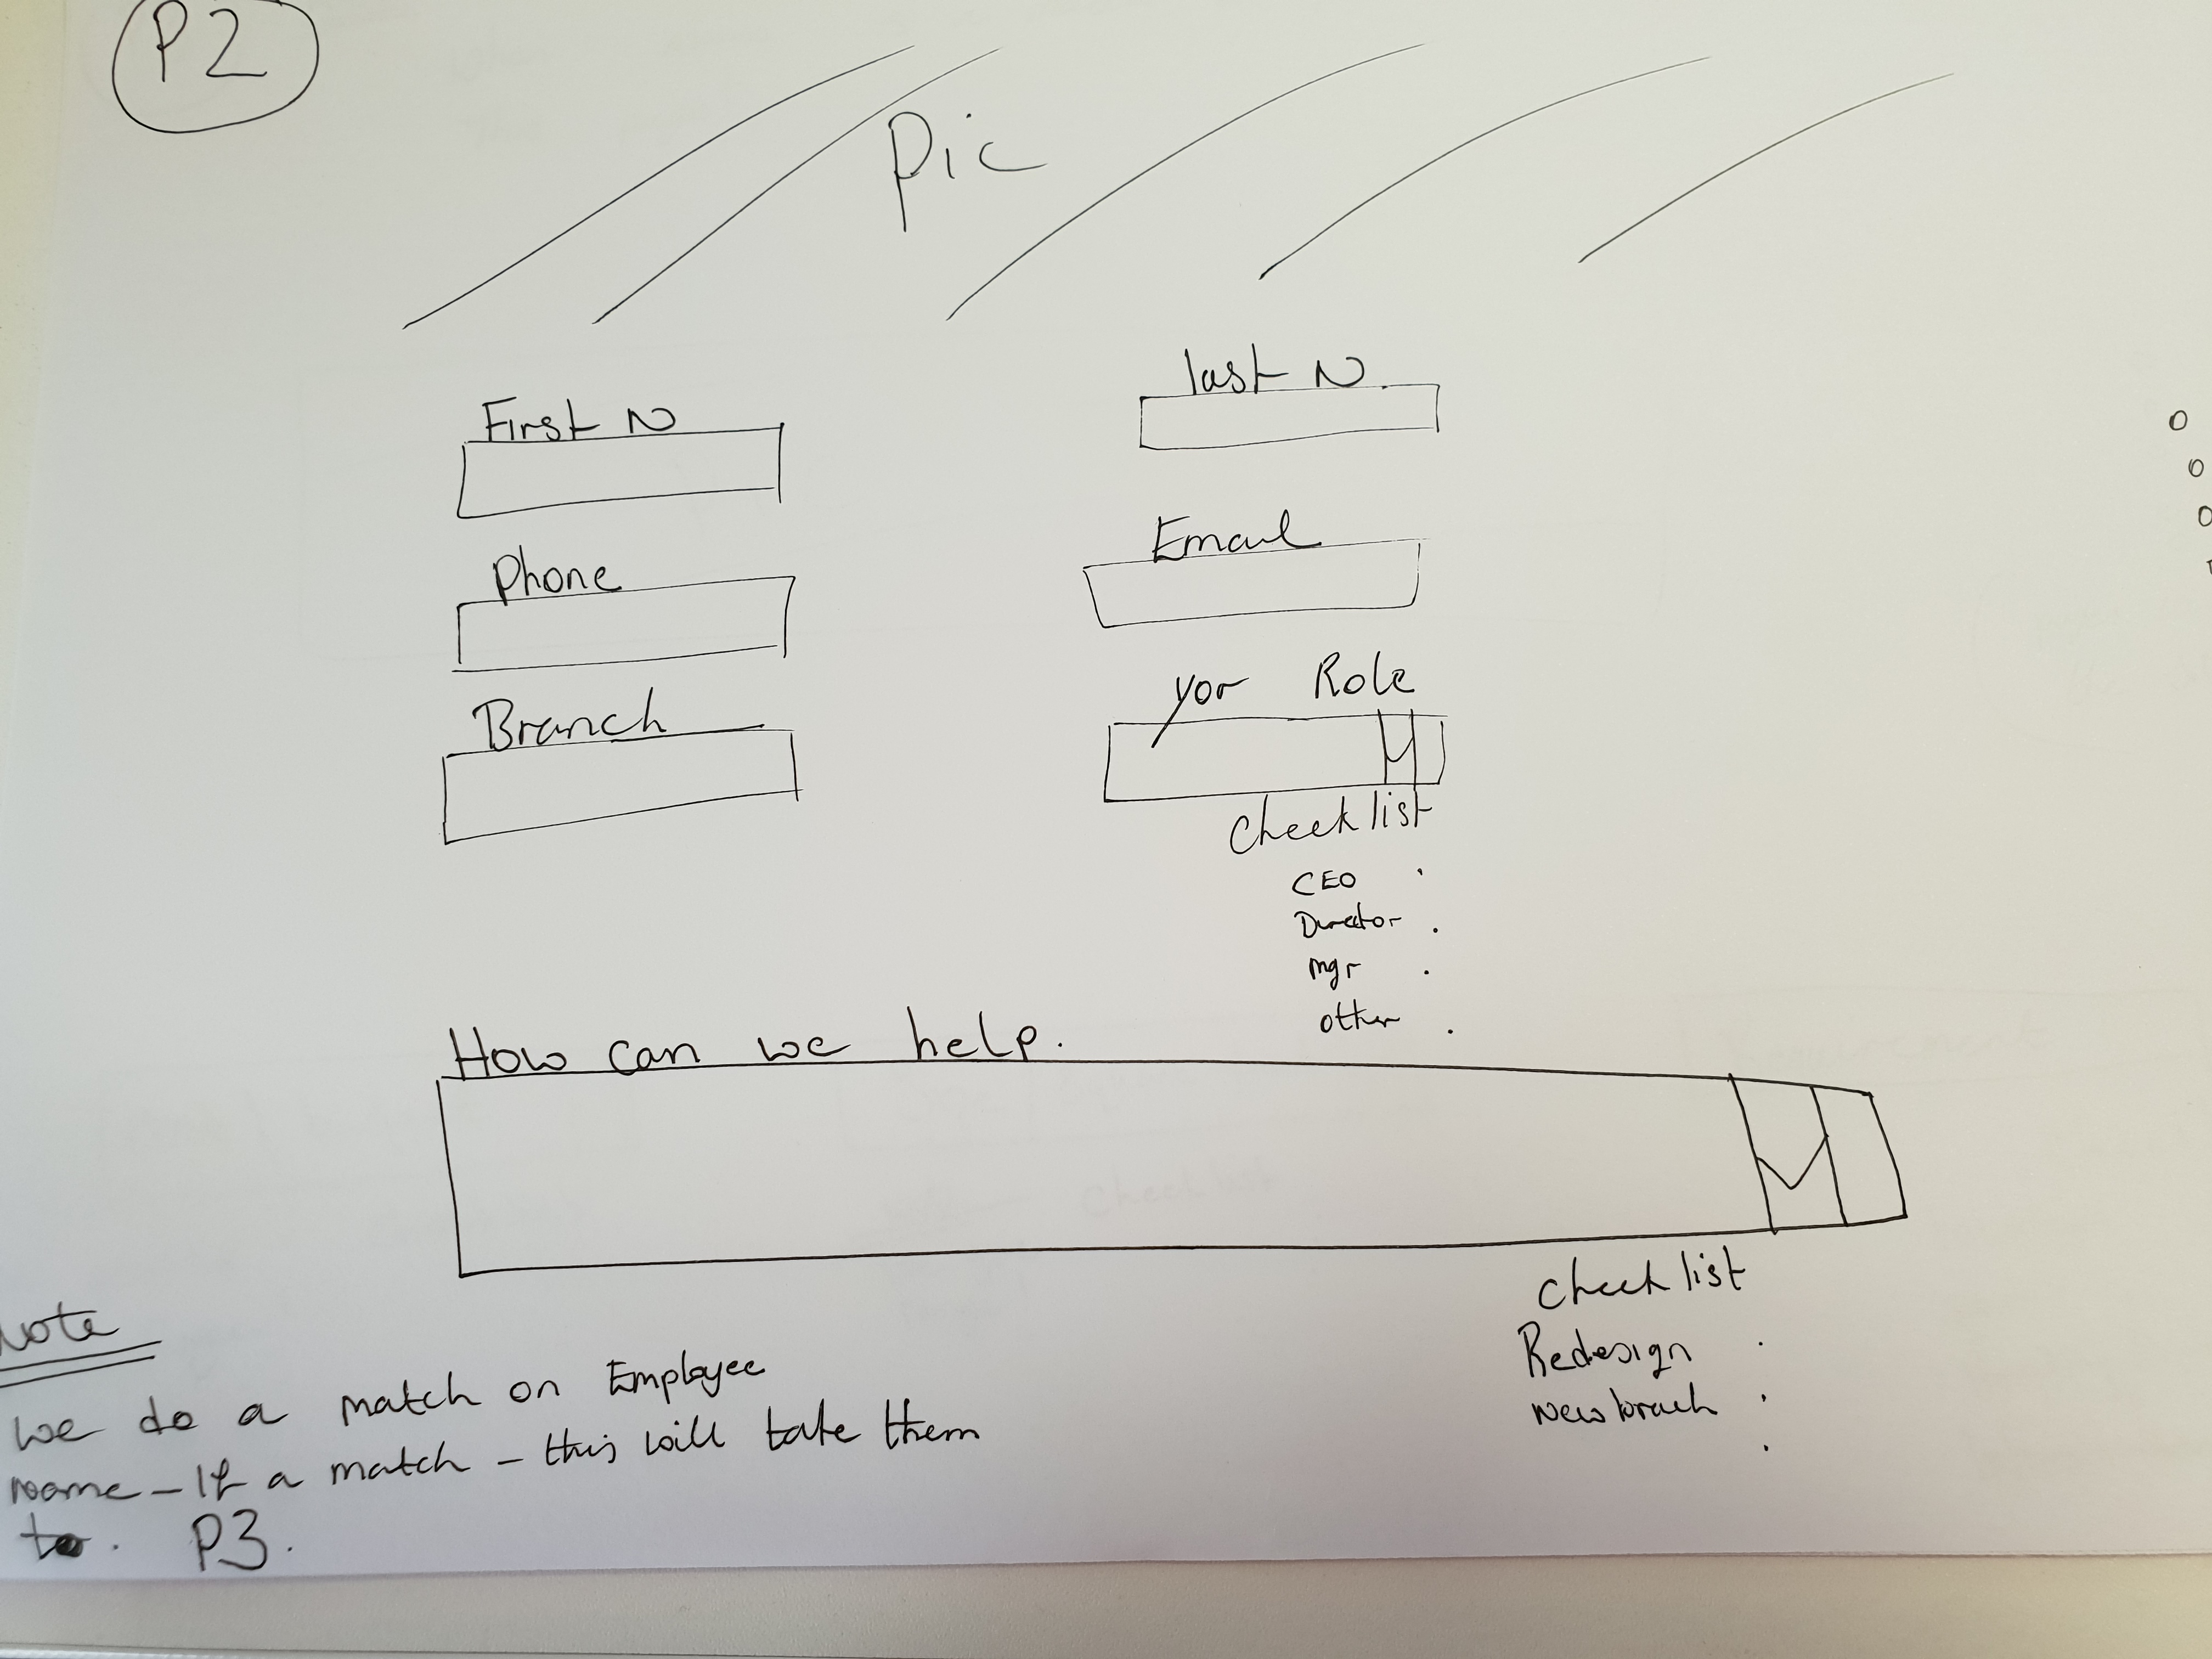 P2
Pic
First N
last N
Phone
Email
Branch
yor Role
Check list
CEO
Director
Mgr
other
How can we help.
Check list
Redesign
New branch
Note
We do a match on Employee
name - If a match - this will take them
to. P3.